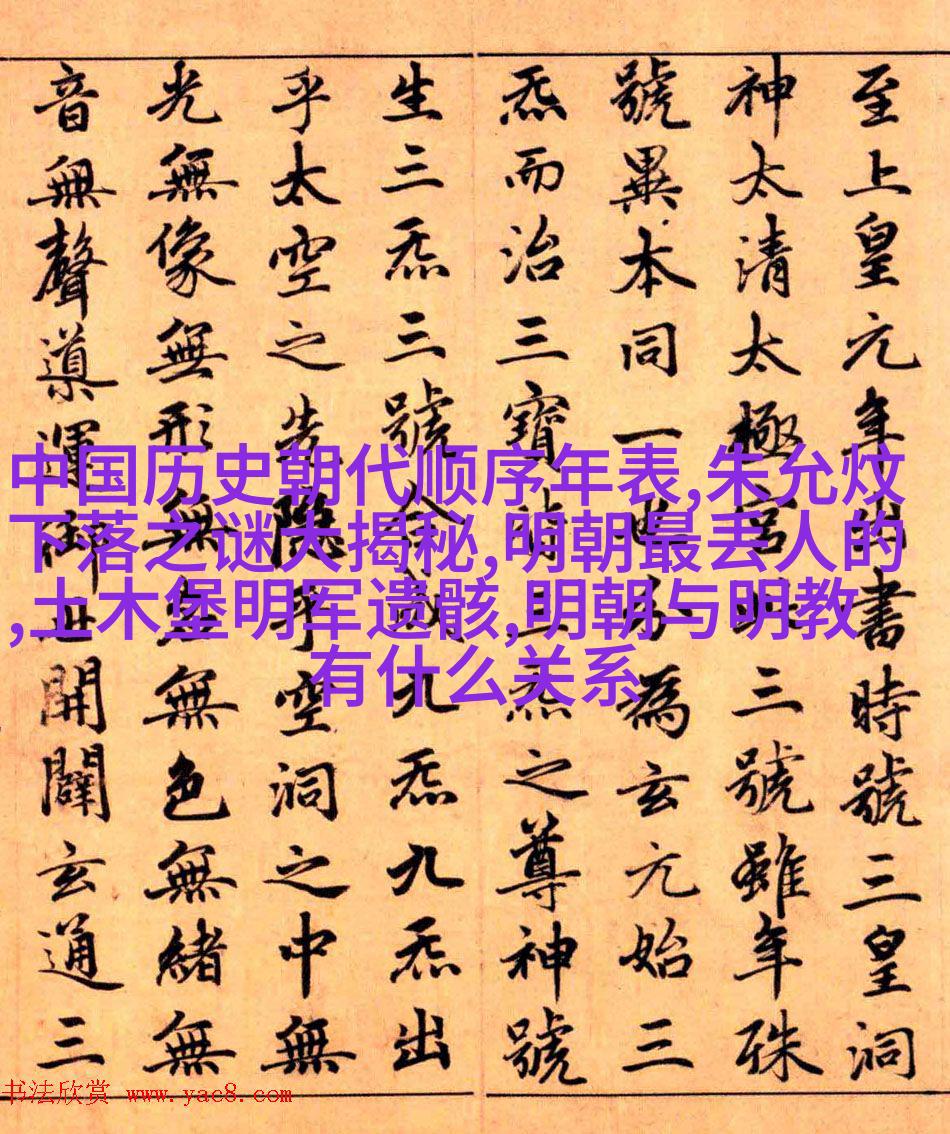 至上皇元年出書時號三皇洞
神太清太極宮此三號雖年殊
號異本同一也分為玄元始三
炁而治三寶皆三炁之尊神號
生三炁三號合成九炁九炁出
乎太空之先隱乎空洞之中無
光無像無形無名無色無緒無
音無聲導運御世開闢玄通三
中国历史朝代顺序年表,朱允炆
下落之谜大揭秘,明朝最丢人的
,土木堡明军遗骸,明朝与明教
有什么关系
书法欣赏 www.yac8.com